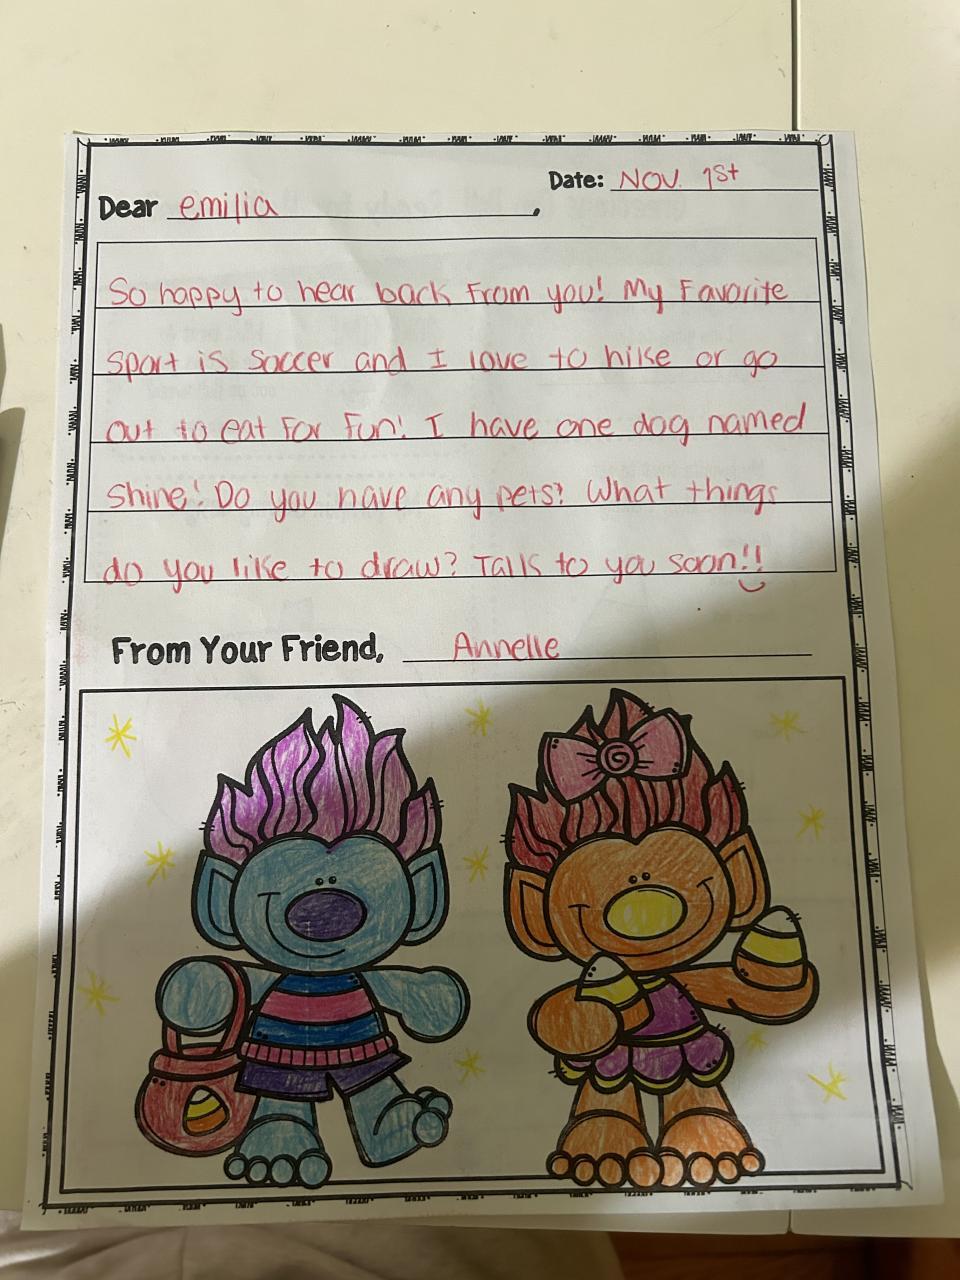 Date: Nov. 1st
Dear emilia,
So happy to hear back from you! My Favorite
sport is soccer and I love to hike or go
out to eat For Fun! I have one dog named
Shine! Do you have any pets? What things
do you like to draw? Talk to you soon!!
From Your Friend, Annelle